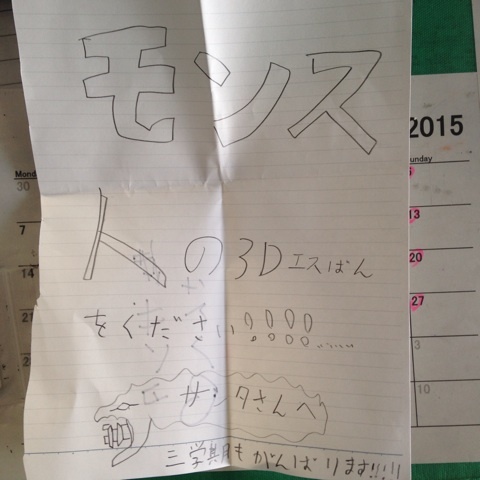 モンス
トの3Dエスばん
をください!!!!!!……
サンタさんへ
三学期もがんばります!!!!!
2015
Mond
unday
30
7
13
14
20
21
27
2
3
10